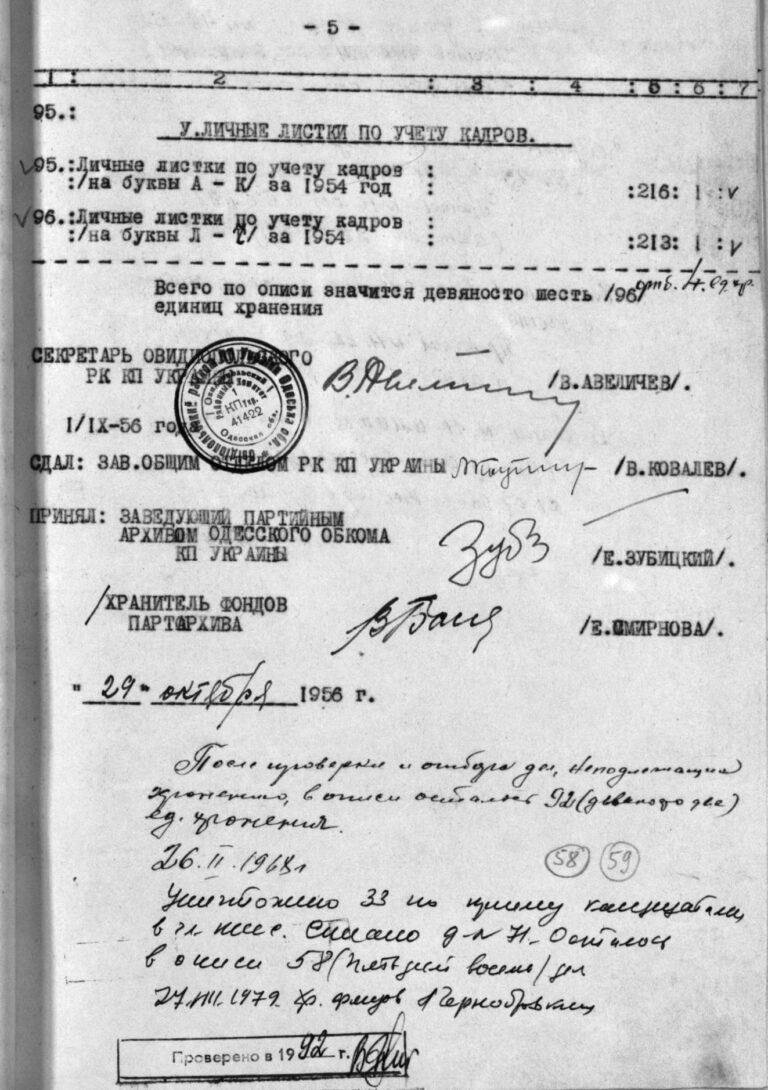 - 5 -
1 : 2 : 3 : 4 : 5 : 6 : 7
95.:
У.ЛИЧНЫЕ ЛИСТКИ ПО УЧЕТУ КАДРОВ.
95.:Личные листки по учету кадров :
:/на буквы А - К/ за 1954 год : :216: 1 : v
96.:Личные листки по учету кадров :
:/на буквы Л - / за 1954 : :213: 1 : v
Всего по описи значится девяносто шесть /96/
единиц хранения
СЕКРЕТАРЬ ОВИДИОПОЛЬСКОГО
РК КП УКРАИНЫ /В.АВЕЛИЧЕВ/.
41422
I/IX-56 года
СДАЛ: ЗАВ.ОБЩИМ ОТДЕЛОМ РК КП УКРАИНЫ /В.КОВАЛЕВ/.
ПРИНЯЛ: ЗАВЕДУЮЩИЙ ПАРТИЙНЫМ
АРХИВОМ ОДЕССКОГО ОБКОМА
КП УКРАИНЫ /Е.ЗУБИЦКИЙ/.
/ХРАНИТЕЛЬ ФОНДОВ
ПАРТАРХИВА /Е.СМИРНОВА/.
"29" октября 1956 г.
После проверки и отбора дел, неподлежащих
хранению, в описи осталось 92 (девяносто две)
ед. хранения.
26.II.1968г
58 59
Уничтожено 33 по приему кандидатами
в чл. КПСС. Осталось
в описи 58 (пятьдесят восемь) дел
27.VIII.1979 хр. фондов
Проверено в 1992 г.